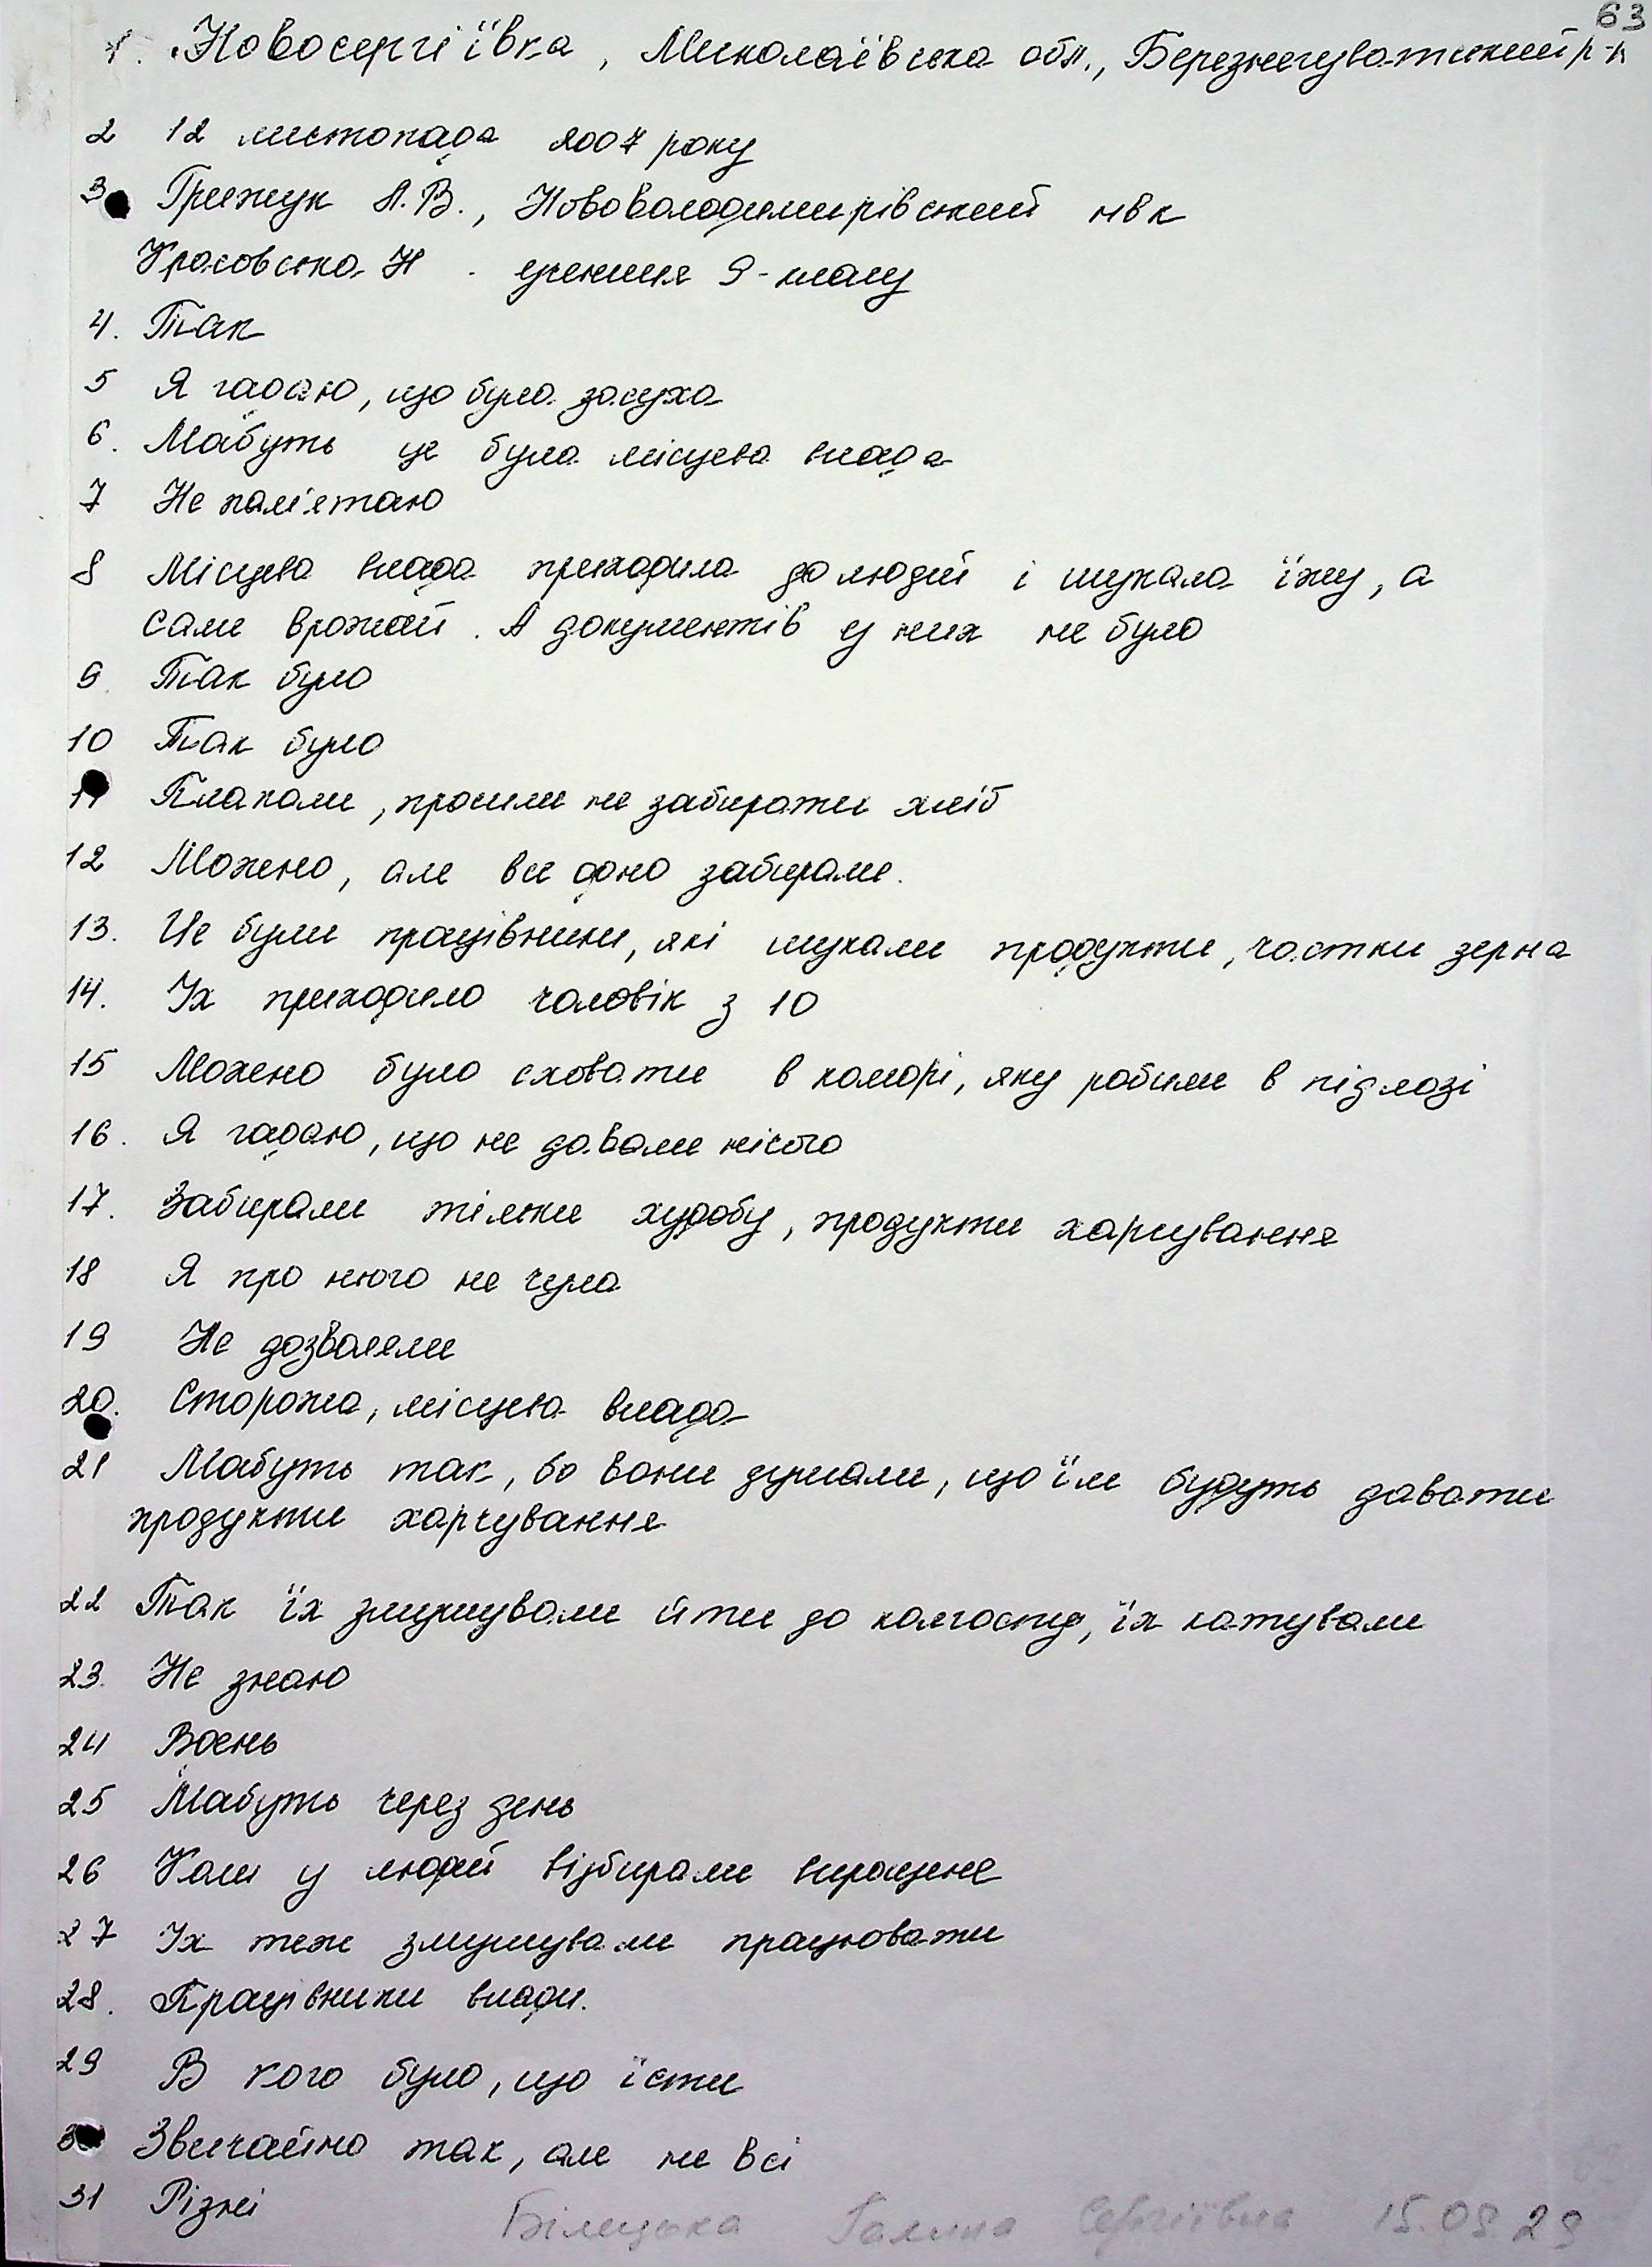 63
1. Новосергіївка, Миколаївська обл., Березнегуватський р-н
2 12 листопада 2007 року
3 Грижук А.В., Нововолодимирівський нвк
Красовська Н - учениця 9-класу
4. Так
5 Я гадаю, що була засуха
6. Мабуть це була місцева влада
7 Не пам'ятаю
8 Місцева влада приходила до людей і шукала їжу, а
саме врожай. А документів у них не було
9. Так було
10 Так було
11 Плакали, просили не забирати хліб
12 Можно, але все одно забирали.
13. Це були працівники, які шукали продукти, частки зерна
14. Їх приходило чоловік з 10
15 Можено було сховати в коморі, яку робили в підлозі
16. Я гадаю, що не давали нічого
17. Забирали тільки худобу, продукти харчування
18 Я про нього не чула
19 Не дозволяли
20. Сторожа, місцева влада
21 Мабуть так, бо вони думали, що їм будуть давати
продукти харчування
22 Так їх змушували йти до колгоспу, їх катували
23. Не знаю
24 Восень
25 Мабуть через день
26 Коли у людей відбирали вирощене
27 Їх теж змушували працювати
28. Працівники влади.
29 В кого було, що їсти
30 Звичайно так, але не всі
31 Різні
Білецька Галина Сергіївна 15.09.29